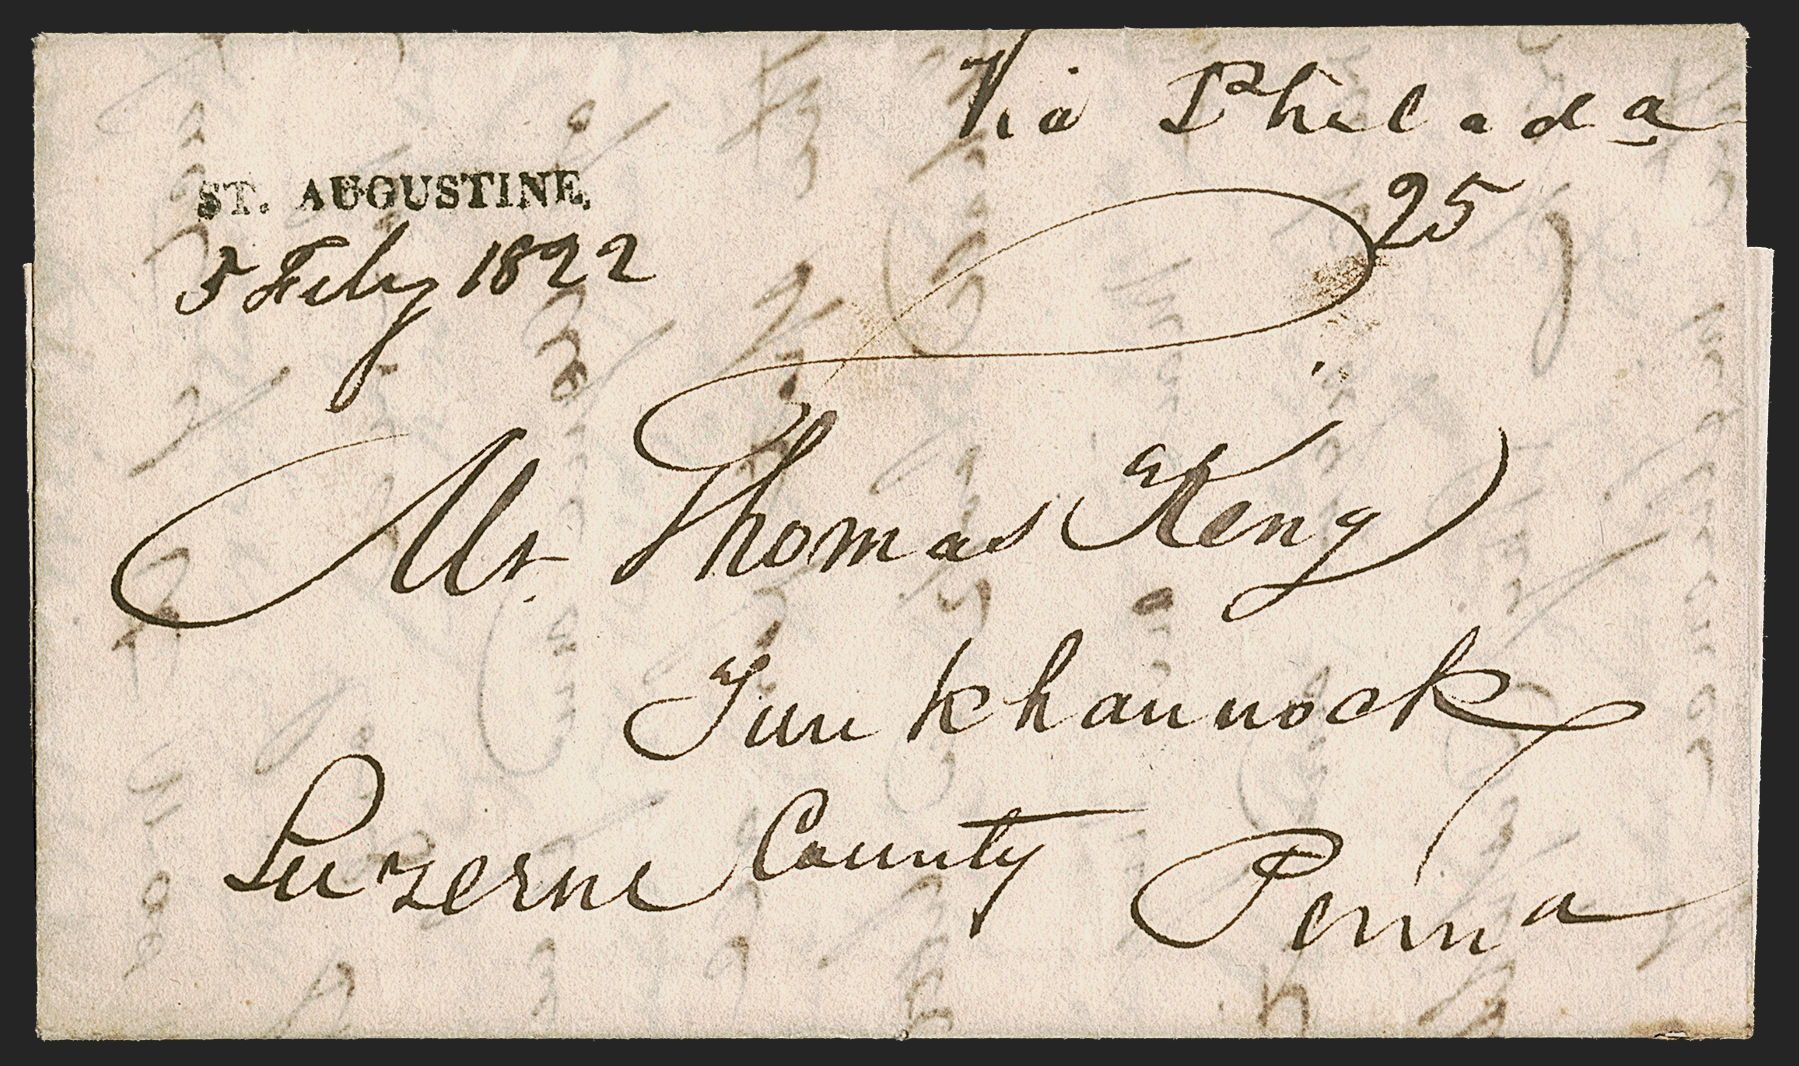 Via Philada
ST. AUGUSTINE.
5 Feby 1822
25
Mr. Thomas King
Tunkhannock
Luzerne County Penna